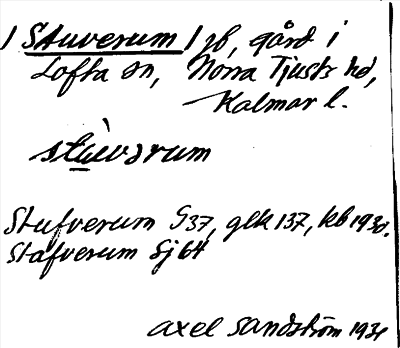 / Stuverum / gb, gård i
Lofta sn, Norra Tjusts hd,
Kalmar l.
stùvərum
Stufverum S37, glk 137, kb 1930.
Stafverum Sj64
Axel Sandström 1931